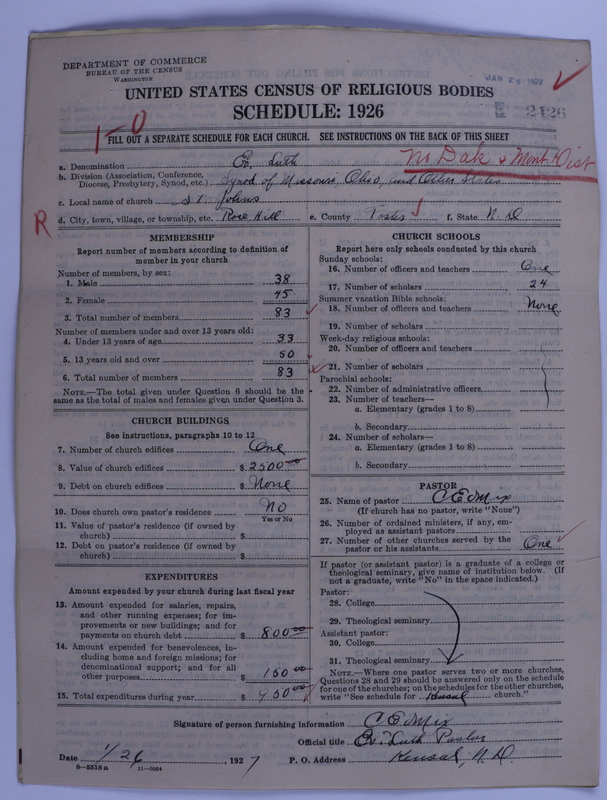 DEPARTMENT OF COMMERCE
BUREAU OF THE CENSUS
WASHINGTON
UNITED STATES CENSUS OF RELIGIOUS BODIES
SCHEDULE: 1926
2126
1-0
FILL OUT A SEPARATE SCHEDULE FOR EACH CHURCH. SEE INSTRUCTIONS ON THE BACK OF THIS SHEET
No Dak & Mont Dist
a. Denomination Ev. Luth
b. Division (Association, Conference, Diocese, Presbytery, Synod, etc.) Synod of Missouri, Ohio, and Other States
c. Local name of church St. Johns
R
d. City, town, village, or township, etc. Rose Hill e. County f. State N. D
MEMBERSHIP
Report number of members according to definition of
member in your church
Number of members, by sex:
1. Male 38
2. Female 45
3. Total number of members 83
Number of members under and over 13 years old:
4. Under 13 years of age 33
5. 13 years old and over 50
6. Total number of members 83
NOTE.—The total given under Question 6 should be the
same as the total of males and females given under Question 3.
CHURCH BUILDINGS
See instructions, paragraphs 10 to 12
7. Number of church edifices One
8. Value of church edifices $ 2500.00
9. Debt on church edifices $ None
10. Does church own pastor's residence No
Yes or No
11. Value of pastor's residence (if owned by
church) $
12. Debt on pastor's residence (if owned by
church) $
EXPENDITURES
Amount expended by your church during last fiscal year
13. Amount expended for salaries, repairs,
and other running expenses; for im-
provements or new buildings; and for
payments on church debt $ 800.00
14. Amount expended for benevolences, in-
cluding home and foreign missions; for
denominational support; and for all
other purposes $ 150.00
15. Total expenditures during year $ 950.00
CHURCH SCHOOLS
Report here only schools conducted by this church
Sunday schools:
16. Number of officers and teachers One
17. Number of scholars 24
Summer vacation Bible schools:
18. Number of officers and teachers None
19. Number of scholars
Week-day religious schools:
20. Number of officers and teachers
21. Number of scholars
Parochial schools:
22. Number of administrative officers
23. Number of teachers—
a. Elementary (grades 1 to 8)
b. Secondary
24. Number of scholars—
a. Elementary (grades 1 to 8)
b. Secondary
PASTOR
25. Name of pastor C E Mix
(If church has no pastor, write "None")
26. Number of ordained ministers, if any, em-
ployed as assistant pastors
27. Number of other churches served by the
pastor or his assistants One
If pastor (or assistant pastor) is a graduate of a college or
theological seminary, give name of institution below. (If
not a graduate, write "No" in the space indicated.)
Pastor:
28. College
29. Theological seminary
Assistant pastor:
30. College
31. Theological seminary
NOTE.—Where one pastor serves two or more churches,
Questions 28 and 29 should be answered only on the schedule
for one of the churches; on the schedules for the other churches,
write "See schedule for Kensal church."
Signature of person furnishing information C E Mix
Official title Ev. Luth Pastor
Date 1/26, 1927 P. O. Address Kensal N. D.
8—5518a 11—9064